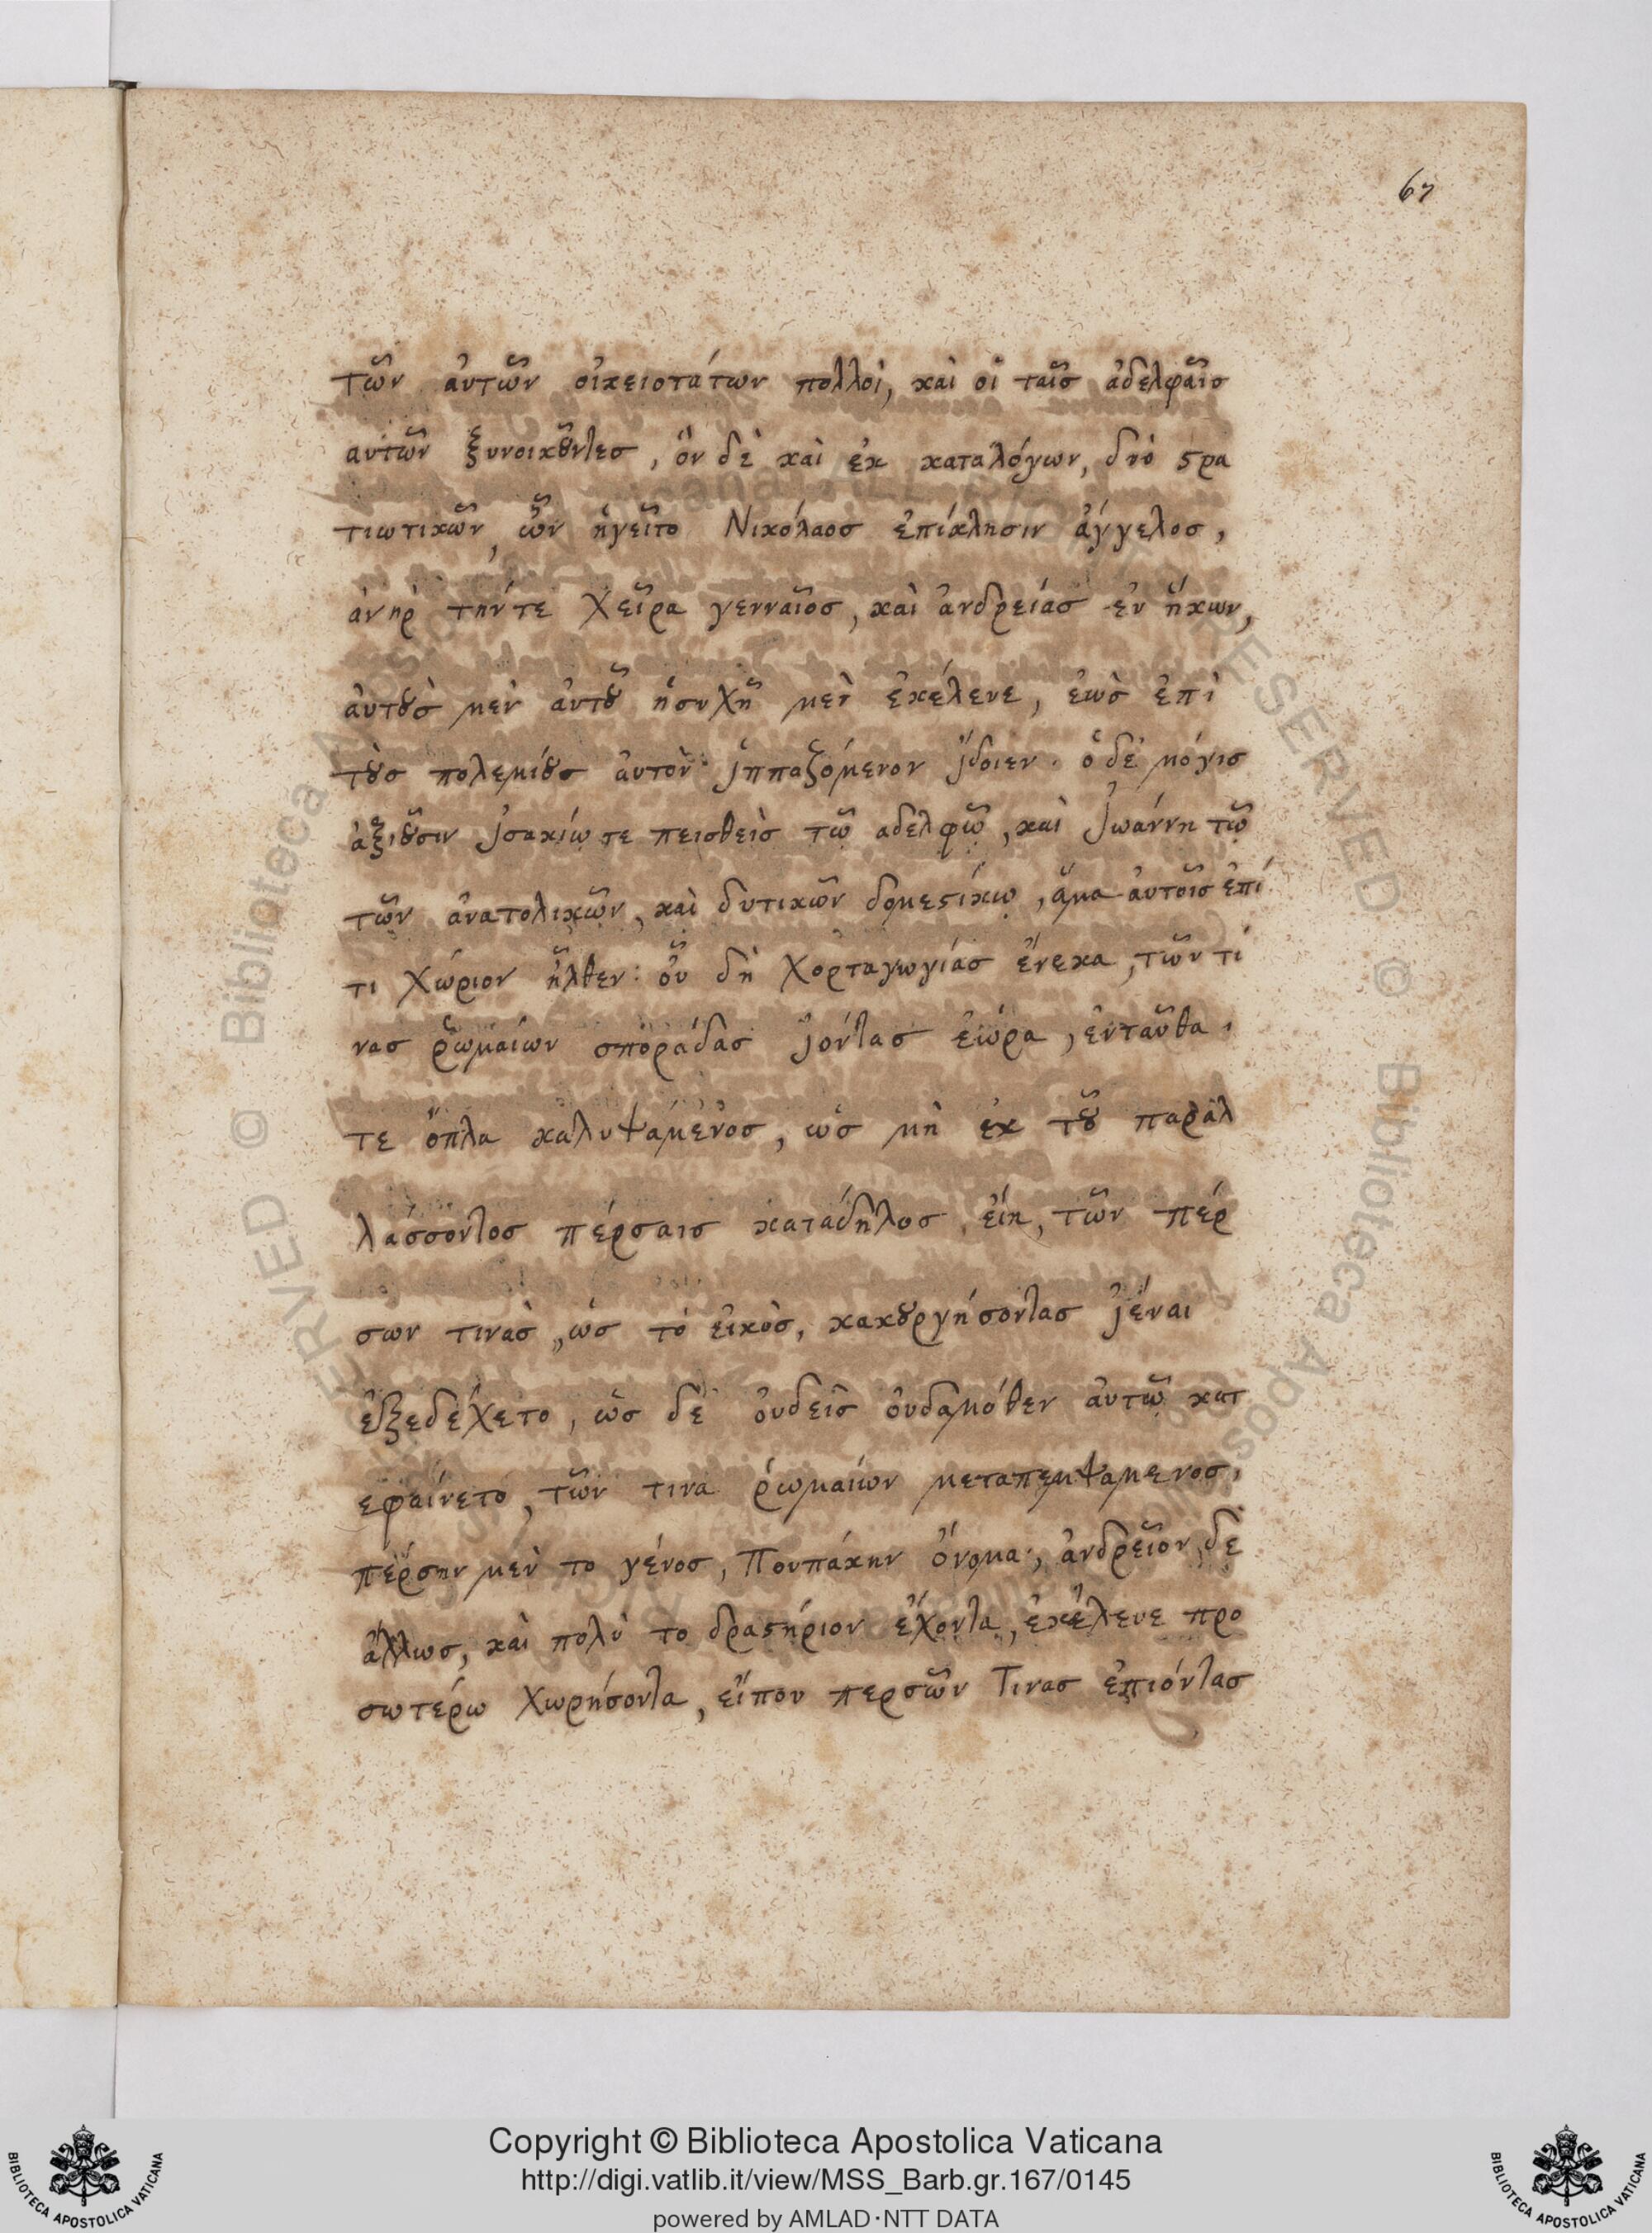 67
τῶν ἀυτῶν οἰκειοτάτων πολλοὶ, καὶ οἱ ταῖσ ἀδελφαῖσ
αυτῶν ξυνοικοῦντεσ, ὃν δὲ καὶ ἐκ καταλόγων, δυό στρα
τιωτικῶν, ὧν ἡγεῖτο Νικόλαοσ ἐπίκλησιν ἀγγελοσ,
ἀνηρ τήν τε χεῖρα γενναῖοσ, καὶ ἀνδρείασ εὐ ἥκων,
ἀυτοὺσ μὲν ἀυτοῦ ἡσυχῆ μὲν ἐκέλευε, ἑωσ ἐπὶ
τοὺσ πολεμίουσ ἀυτὸν ἱππαζόμενον ἴδοιεν. ὁ δὲ μόγισ
ἀξιοῦσιν ἰσακίῳ τε πεισθεὶσ τῷ αδελφῷ, καὶ ἰωάννη τῷ
τῶν ἀνατολικῶν, καὶ δυτικῶν δομεστίκῳ, ἅμα ἀυτοῖσ ἐπί
τι χώριον ἦλθεν: οὗ δὴ χορταγωγίασ ἕνεκα, τῶν τι
νασ ῥωμαίων σποράδασ ἰόντασ ἑώρα, ἐνταῦθα
τε ὅπλα καλυψάμενοσ, ὡσ μὴ ἐκ τοῦ παραλ
λάσσοντοσ πέρσαισ κατάδηλοσ εἴη, τῶν πέρ
σων τινὰσ, ὡσ τὸ εἰκὸσ, κακουργήσοντασ ἰέναι
ἐξεδέχετο, ὡσ δὲ ὀυδεὶσ ὀυδαμόθεν ἀυτῷ κατ
εφαίνετο, τῶν τινα ῥωμαίων μεταπεμψαμενοσ,
πέρσην μὲν το γένοσ, Πουπάκην ὄνομα, ἀνδρεῖον δε
ἄλλωσ, καὶ πολὺ το δραστήριον ἔχοντα, ἐκέλευε προ
σωτέρω χωρήσοντα, εἴπου περσῶν τινασ ἐπιόντασ
Copyright © Biblioteca Apostolica Vaticana
http://digi.vatlib.it/view/MSS_Barb.gr.167/0145
powered by AMLAD·NTT DATA